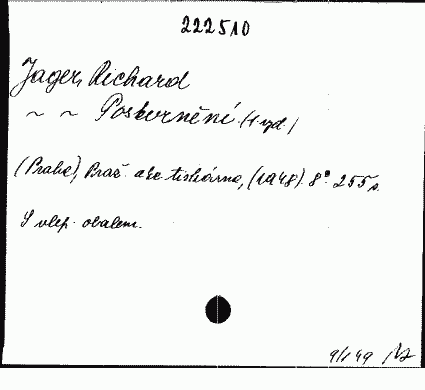 222510
Jager, Richard
~ ~ Poskvrnění. (1. vyd.)
(Praha), Praž. akc. tiskárna, (1948). 8° 255 s.
S vlep. obalem.
9/1 49